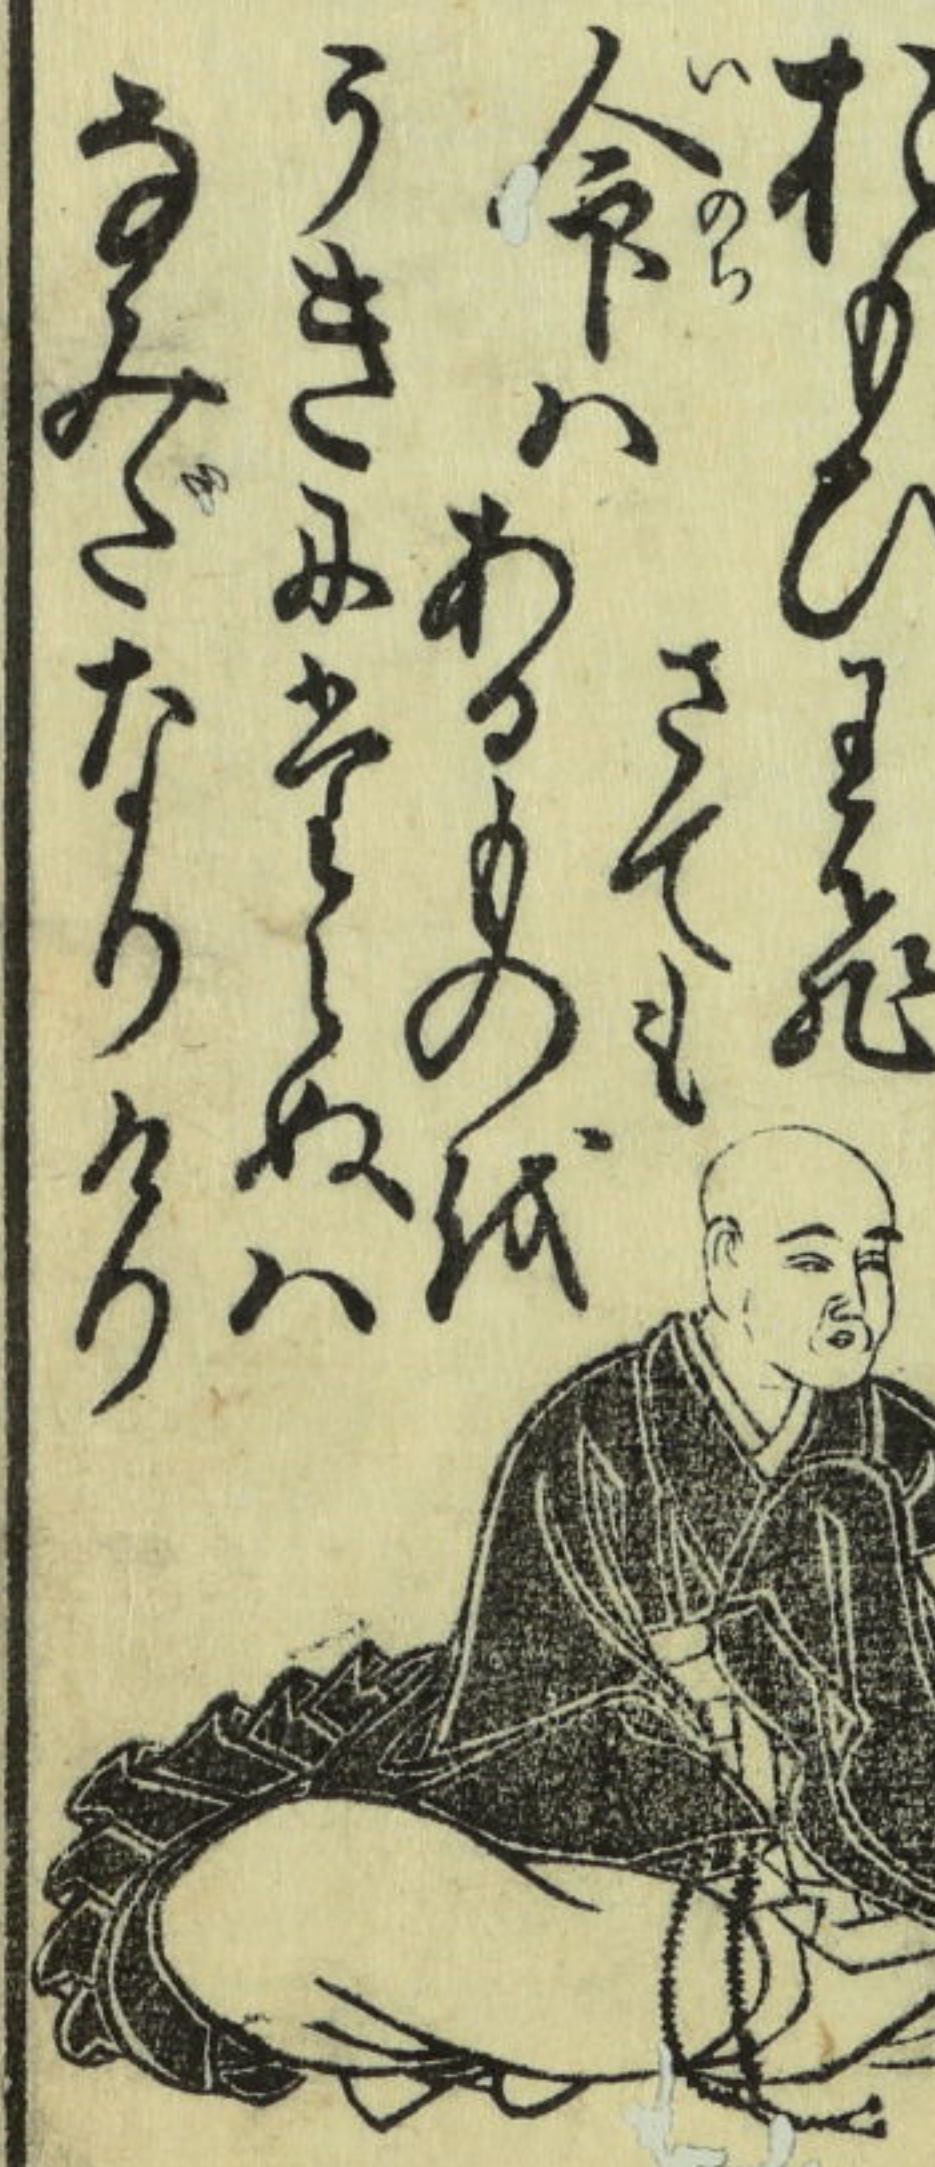 おもひわひ
さても
いのち
命ハ
あるものを
うきにたへぬハ
なみだなりけり